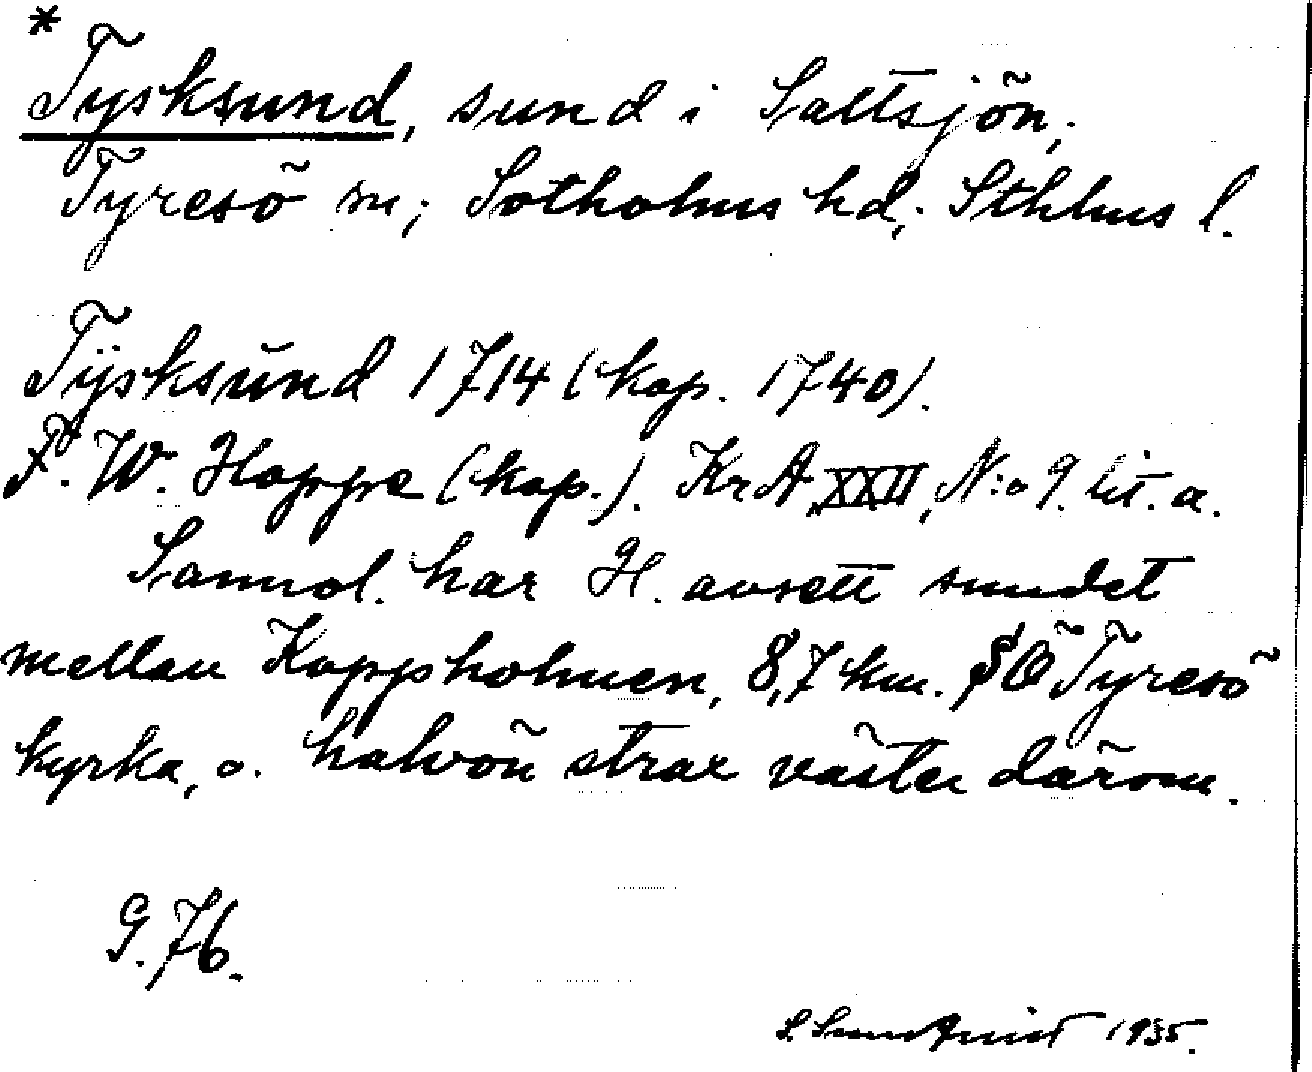 *
Tysksund, sund i Saltsjön,
Tyresö sn; Sotholms hd; Sthlms l.
Tÿsksŭnd 1714 (kop. 1740).
F. W. Hoppe (kop.). KrA, XXII, N:o 9. lit. a.
Sannol. har H. avsett sundet
mellan Koppsholmen, 8,7 km. SÖ Tyresö
kyrka, o. halvön strax väster därom.
G. 76.
S. Sundqvist 1935.